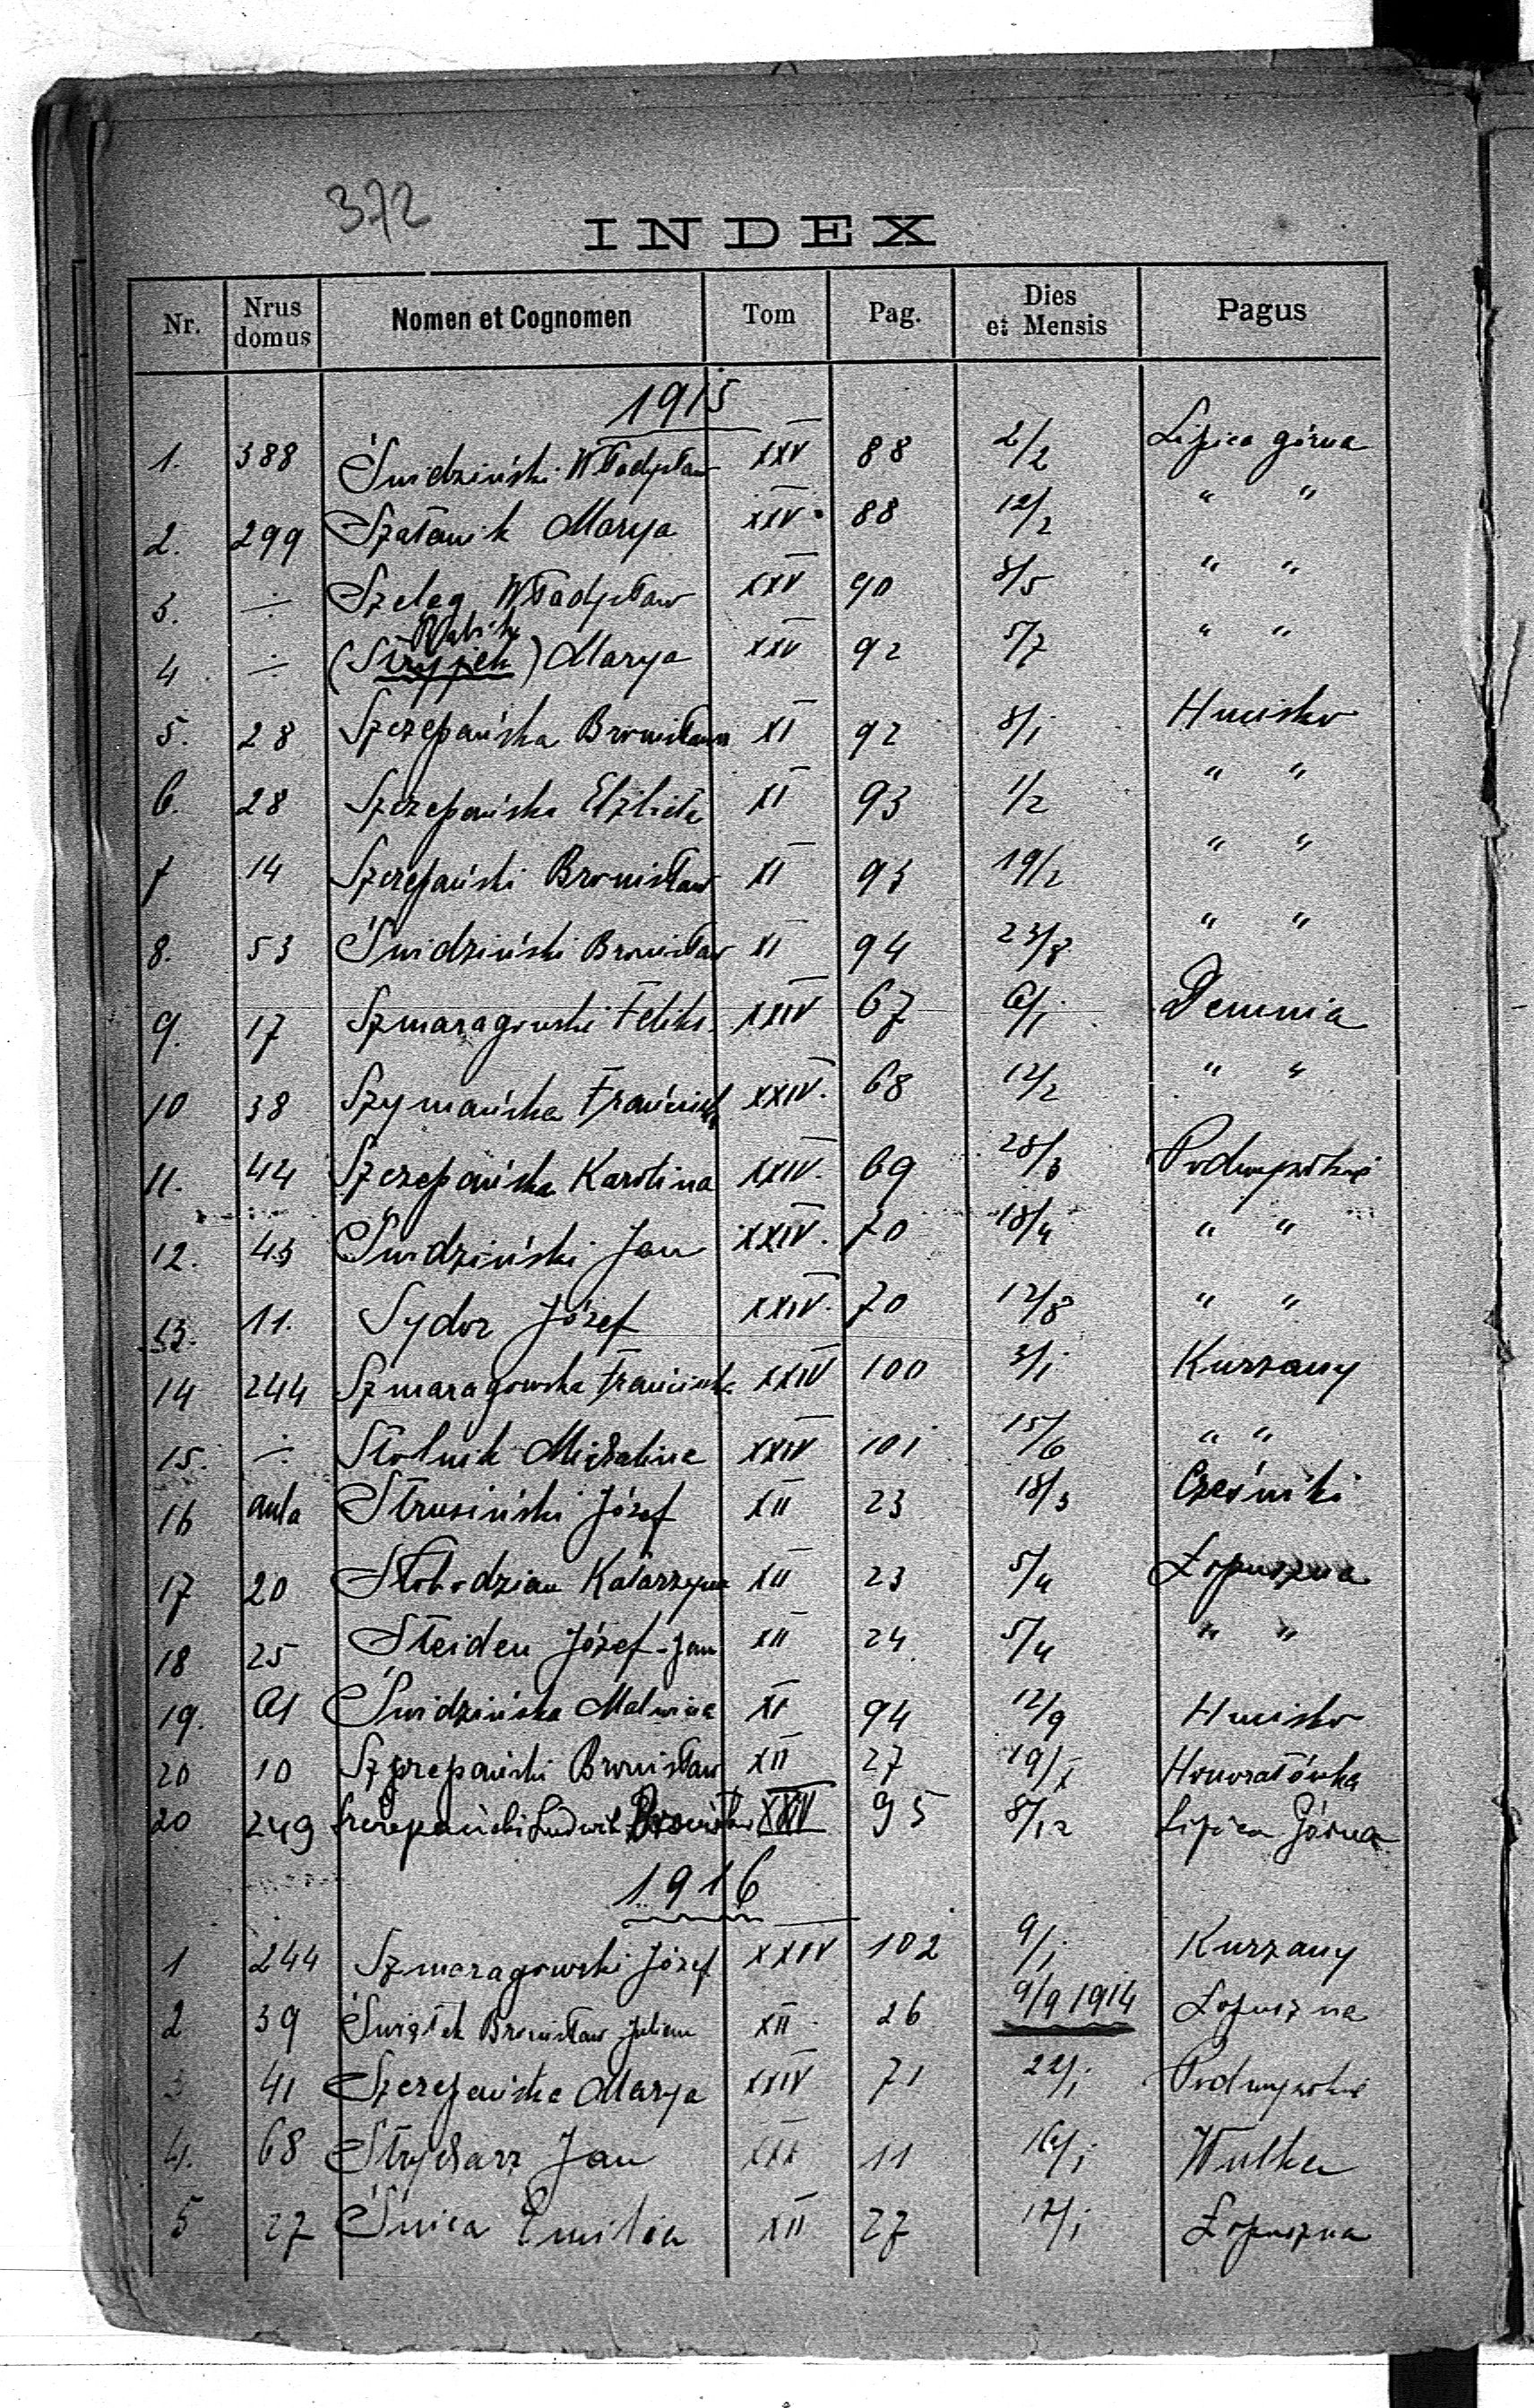 372
INDEX
Nr. Nrus domus Nomen et Cognomen Tom Pag. Dies et Mensis Pagus
1915
1. 388 Świdziński Władysław XXV 88 2/2 Lipica górna
2. 299 Szałanik Marya XXV 88 12/2 " "
3. ÷ Szeląg Władysław XXV 90 8/5 " "
4 ÷ (Stryjek) Marya XXV 92 5/7 " "
5. 28 Szczepańska Bronisława XI 92 8/1 Hucisko
6. 28 Szczepańska Elżbieta XI 93 1/2 " "
7 14 Szczepański Bronisław XI 93 19/2 " "
8. 53 Świdziński Bronisław XI 94 23/8 " "
9. 17 Szmaragowski Feliks XXIV 67 6/1 Demnia
10 38 Szymańska XXIV. 68 12/2 " "
11. 44 Szczepańska Karolina XXIV. 69 28/3 Podwysokie
12. 43 Świdziński Jan XXIV. 70 18/4 " "
13. 11. Sydor Józef XXIV. 70 12/8 " "
14 244 Szmaragowska Franciszka XXIV 100 3/1 Kurzany
15. ÷ Stolnik Michalina XXIV 101 15/6 " "
16 aula Strusiński Józef XII 23 18/3 Cześniki
17 20 Słobodzian Katarzyna XII 23 5/4 Łopuszna
18 25 Steiden Józef-Jan XII 24 5/4 " "
19. Świdzińska Malwina XI 94 12/9 Hucisko
20 10 Szczepański Bronisław XII 27 19/X Honoratówka
20 249 Szczepański Ludwik Bronisław XXV 95 8/12 Lipica Górna
1916
1 244 Szmaragowski Józef XXIV 102 9/1 Kurzany
2 39 Świątek Bronisław Julian XII 26 9/9 1914 Łopuszna
3 41 Szczepańska Marya XXIV 71 22/1 Podwysokie
4. 68 Strycharz Jan XXX 11 16/1 Wulka
5 27 Świca Emilia XII 27 17/1 Łopuszna